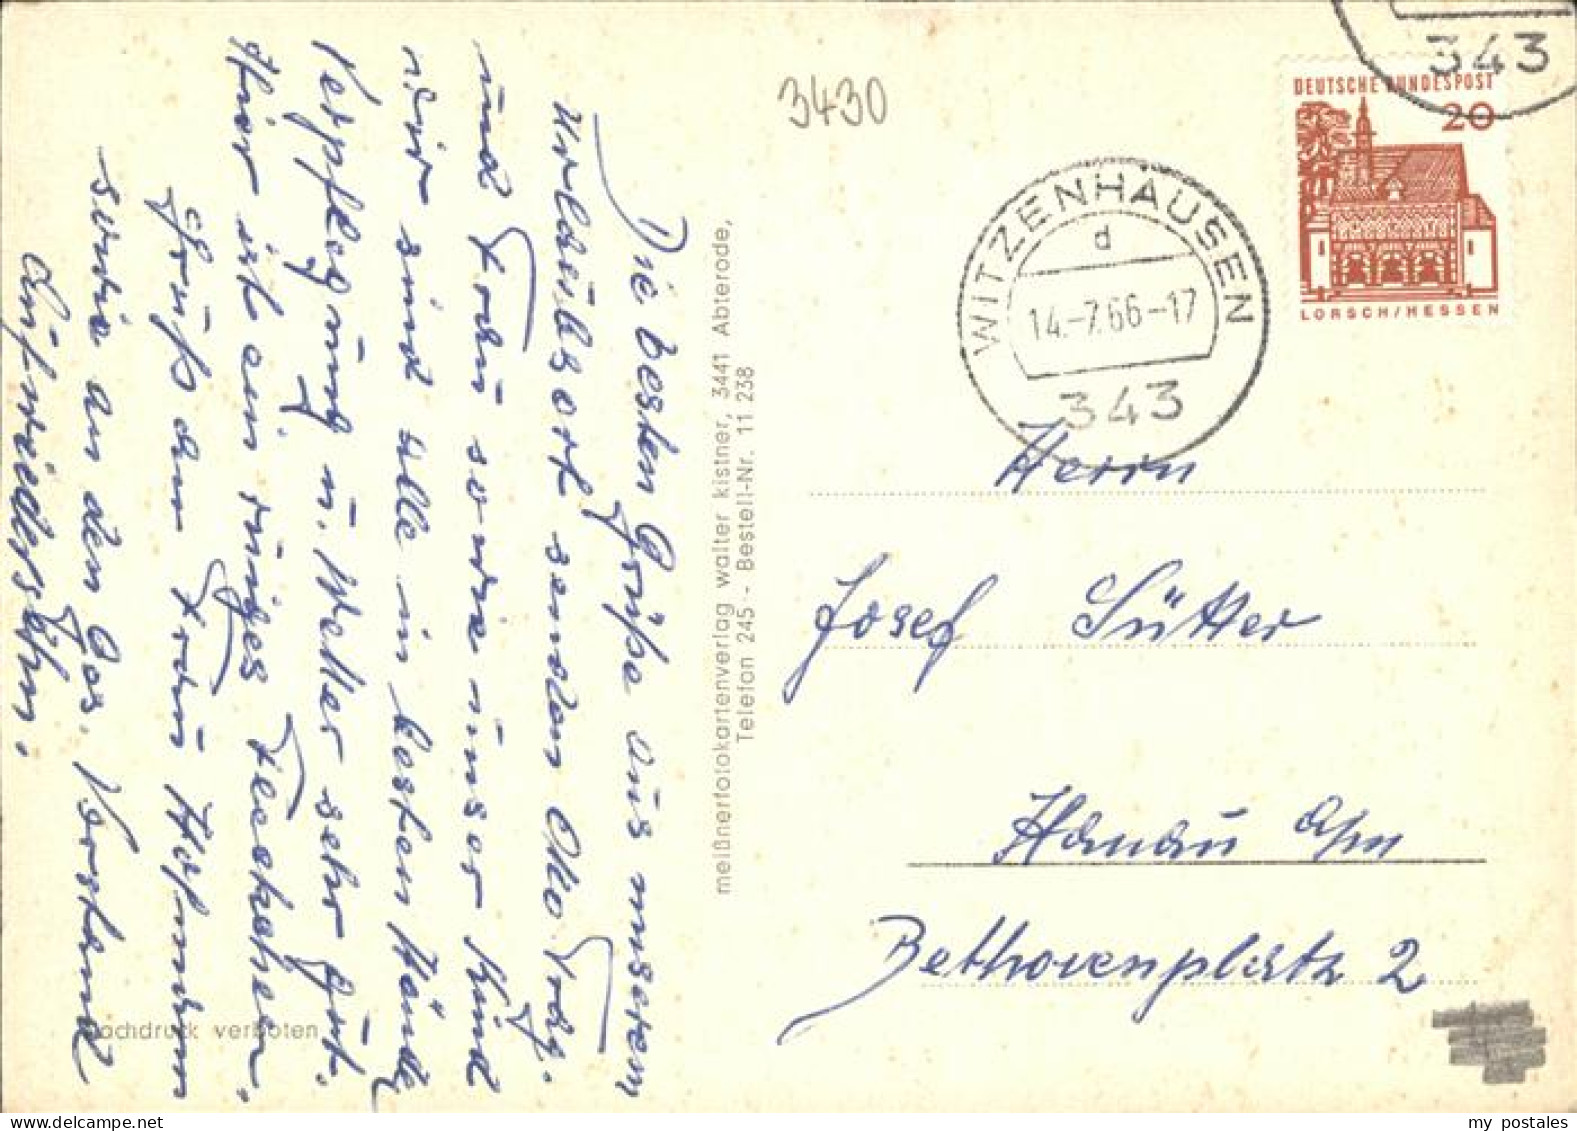 Die besten Grüße aus unserem
Urlaubsort senden Otto
und Frau sowie unser Kind
wir sind alle in besten Händ
Verpflegung u. Wetter sehr gut.
Hier ist ein ruiges Fleckchen.
Gruß an Frau
sowie an den Ges. Vorstand
Aufwiedersehn.
Nachdruck verboten
meißnerfotokartenverlag walter kistner, 3441 Abterode,
Telefon 245 - Bestell-Nr. 11 238
3430
WITZENHAUSEN
d
14.-7.66-17
343
343
DEUTSCHE BUNDESPOST
20
LORSCH/HESSEN
Herrn
Josef Sütter
Hanau a/m
Bethovenplatz 2
my postales